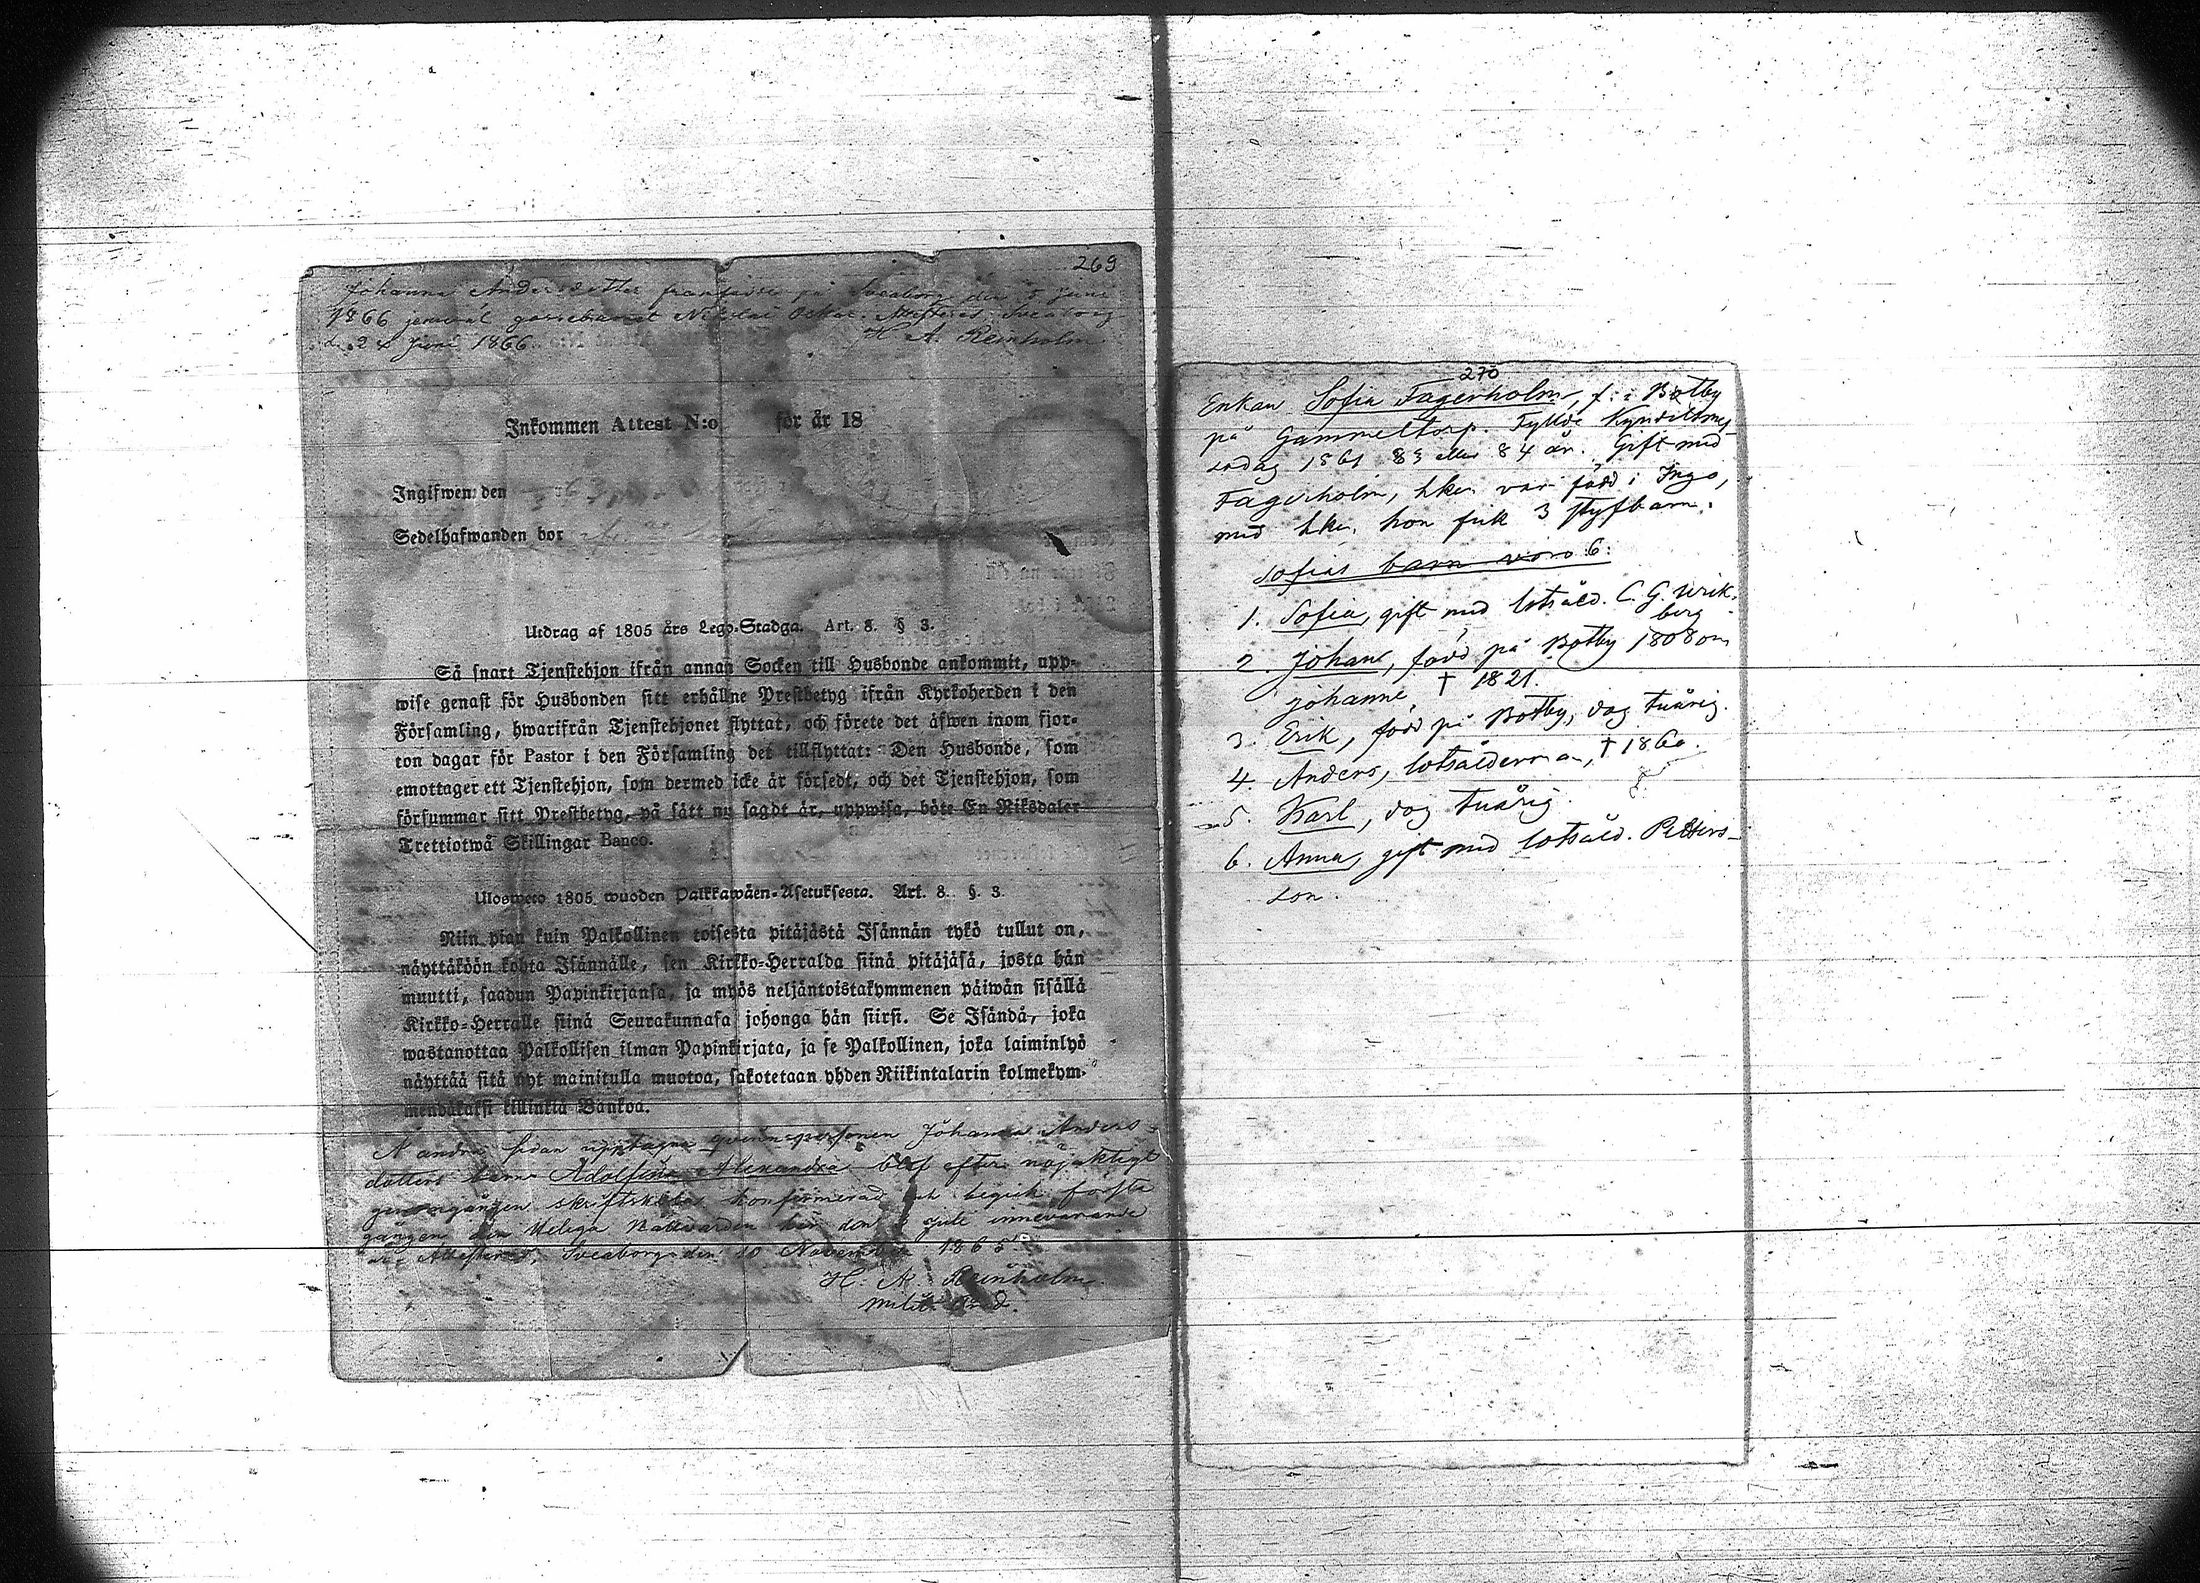 269
Johanna Andersdotter framfödde på Sveaborg den 5 Juni
1866 gossebarnet Nikolai Oskar. Attesteras. Sveaborg
d. 24 Juni 1866. H. A. Reinholm
Inkommen Attest N:o för år 18
Ingifwen den
Sedelhafwanden bor
Utdrag af 1805 års Lego-Stadga. Art. 8. § 3.
Så snart Tjenstehjon ifrån annan Socken till Husbonde ankommit, upp-
wise genast för Husbonden sitt erhållne Prestbetyg ifrån Kyrkoherden i den
Församling, hwarifrån Tjenstehjonet flyttat, och förete det äfwen inom fjor-
ton dagar för Pastor i den Församling det tillflyttat: Den Husbonde, som
emottager ett Tjenstehjon, som dermed icke är försedt, och det Tjenstehjon, som
försummar sitt Prestbetyg, på sätt nu sagdt är, uppwisa, böte En Riksdaler
Trettiotwå Skillingar Banco.
Ulosweto 1805 wuoden Palkkawäen-Asetuksesta. Art. 8. §. 3.
Niin pian kuin Palkollinen toisesta pitäjästä Isännän tykö tullut on,
näyttäköön kohta Isännälle, sen Kirkko-Herralda siinä pitäjäsä, josta hän
muutti, saadun Papinkirjansa, ja myös neljäntoistakymmenen päiwän sisällä
Kirkko-Herralle siinä Seurakunnasa johonga hän siirsi. Se Isändä, joka
wastanottaa Palkollisen ilman Papinkirjata, ja se Palkollinen, joka laiminlyö
näyttää sitä nyt mainitulla muotoa, sakotetaan yhden Riikintalarin kolmekym-
mendäkaksi killinkiä Bankoa.
Å andra sidan upptagna qvinnspersonen Johanna Anders-
dotters barn Adolfina Alexandra blef efter nöjaktigt
genomgången skriftskola konfirmerad och begick första
gången den Heliga Nattvarden här den Juli innevarande
år. Attesterar, Sveaborg den 10 November 1865.
H. A. Reinholm
270
Enkan Sofia Fagerholm, f: i Botby
på Gammeltorp. Fyllde Kyndelsmes-
sodag 1861 83 eller 84 år. Gift med
Fagerholm, hken var född i Ingo,
med hken hon fick 3 styfbarn.
Sofias barn voro 6:
1. Sofia, gift med lotsåld. C. G. Wik-
berg
2. Johan, född på Botby 1808 om
johanne, † 1821.
3. Erik, född på Botby, dog tuårig.
4. Anders, lotsålderman, † 1860.
5. Karl, dog tuårig.
6. Anna, gift med lotsåld. Petters-
son.